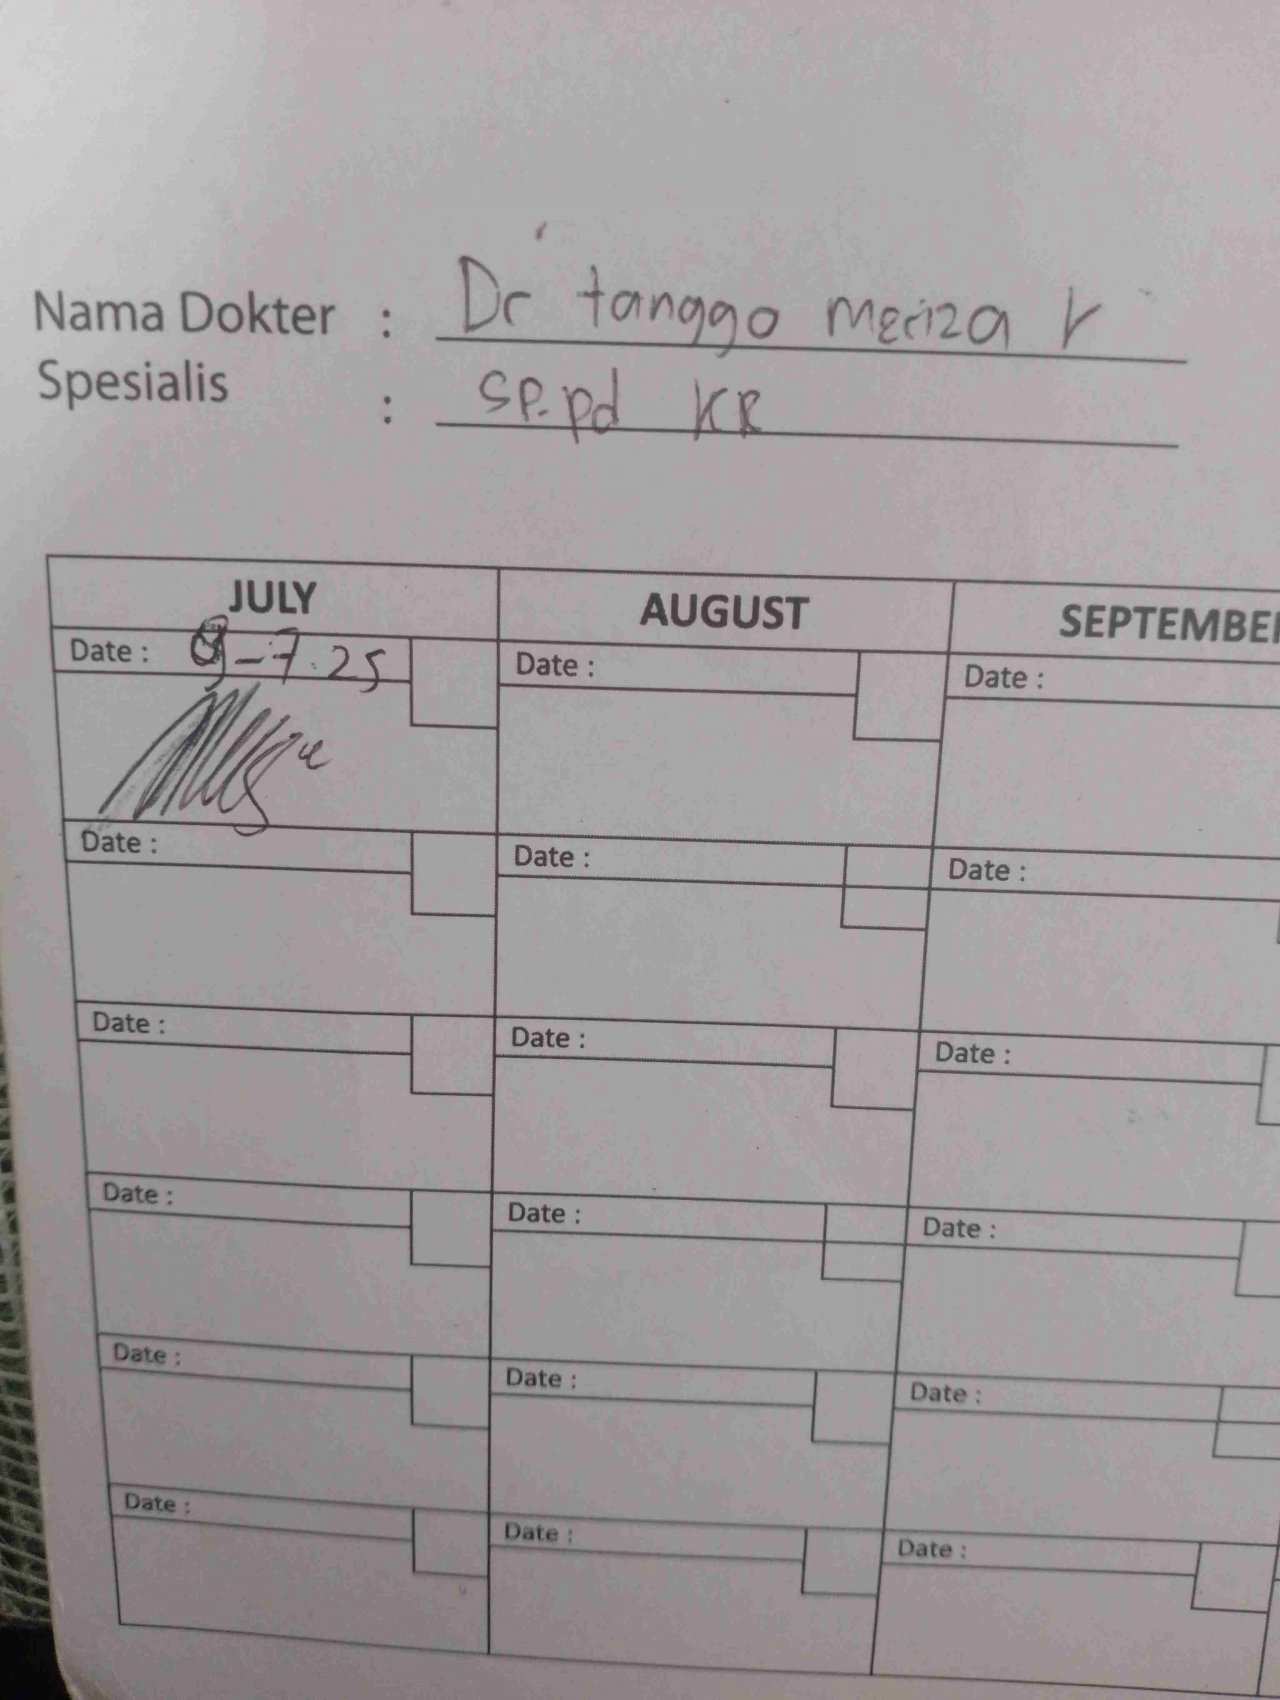 Nama Dokter : Dr tanggo meriza r
Spesialis : sp.pd KR
JULY AUGUST SEPTEMBER
Date : 9-7.25 Date : Date :
Date : Date : Date :
Date : Date : Date :
Date : Date : Date :
Date : Date : Date :
Date : Date : Date :